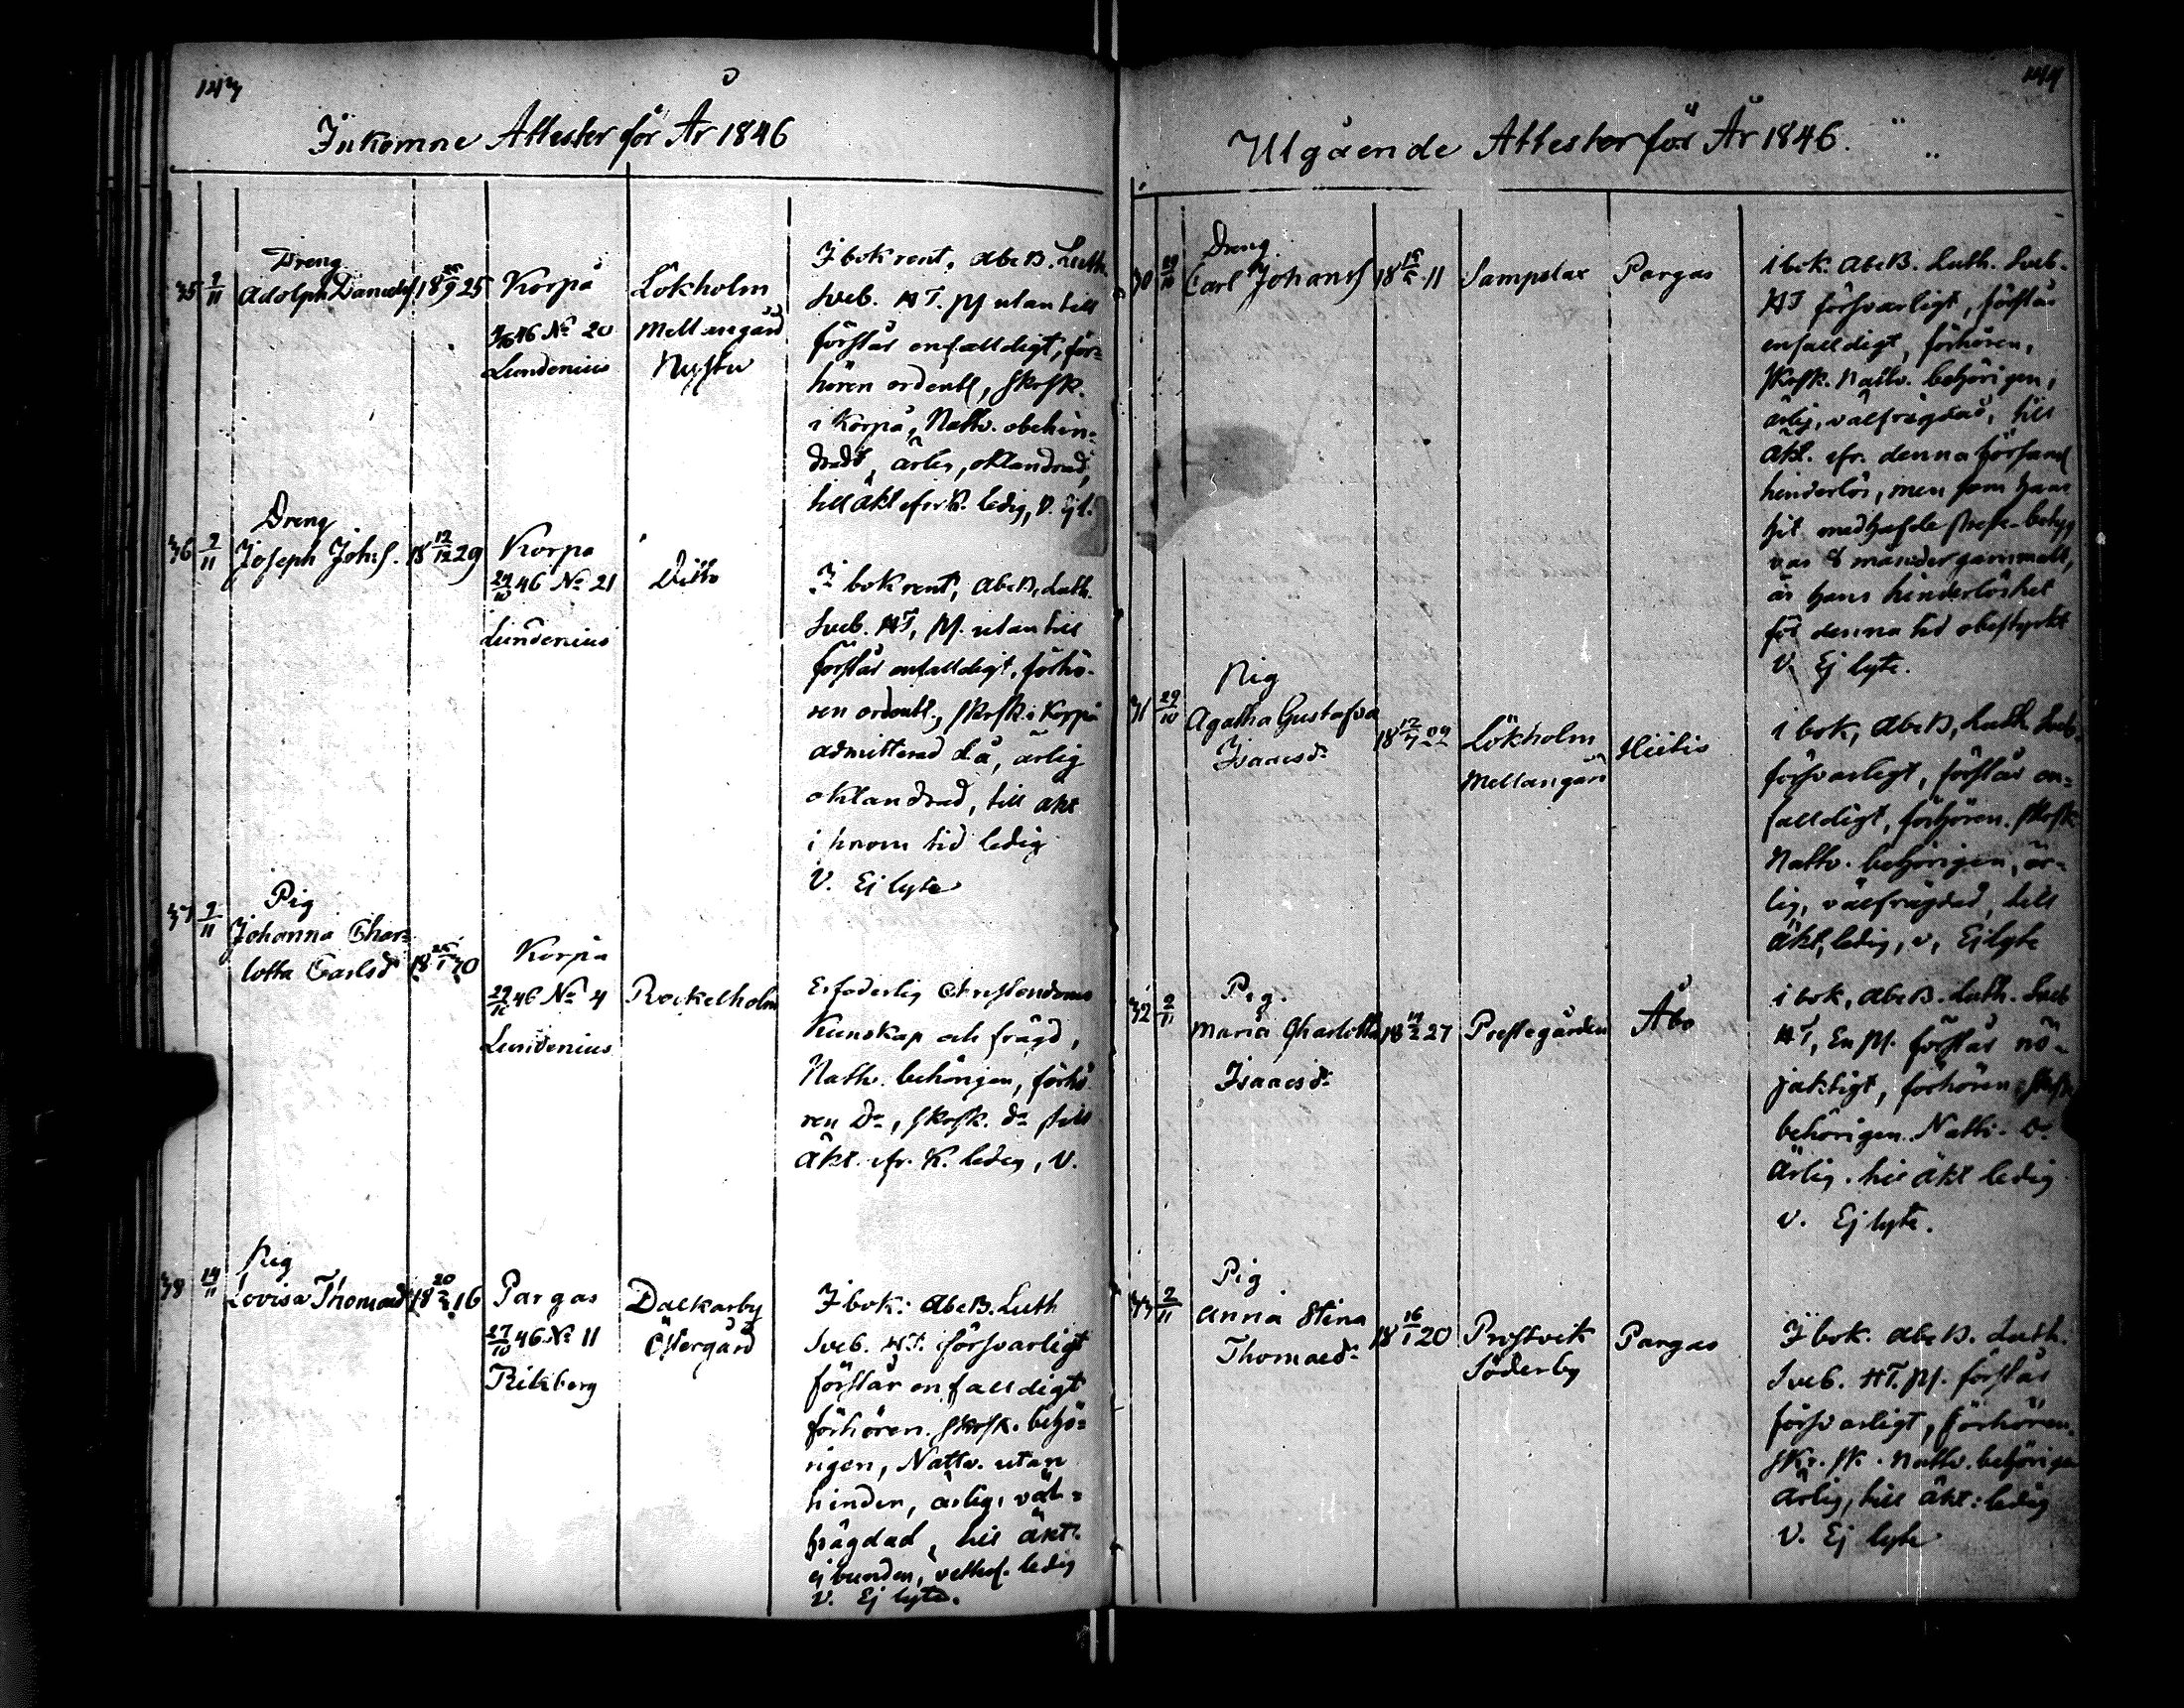 143
Inkomne Attester för År 1846
35 2/11
Dreng
Adolph Danielss.
18 /9 25
Korpå
46 No 20
Lundenius
Lökholm
Mellangård
Nystu
I bok rent, Abc B. Luth.
Sveb. HT. Ps utan till
förstår enfalldigt, för-
hören ordentl, skrsk.
i Korpå, Nattv. obehin-
dradt, ärlig, oklandrad,
till äkt efr K. ledig, V. Ej l.
36 2/11
Dreng
Joseph Johs.
18 12/12 29
Korpo
29/10 46 No 21
Lundenius
Ditto
I bok rent, Abc B, Luth.
Sveb. HT, Ps. utan till
förstår enfalldigt, förhö-
ren ordentl., skrsk. i Korpå
admitterad d.ä, ärlig
oklandrad, till äkt
i hnom tid ledig
V. Ej lyte
37 2/11
Pig
Johanna Char-
lotta Carlsdr
Korpå
29/10 46 No 4
Lundenius
Rockelholm
Erfoderlig Christendoms
Kunskap och frägd,
Nattv. behörigen, förhö-
ren Do, skrsk. do till
äkt. efr. K. ledig, V.
38 14/11
Pig
Lovisa Thomasd
18 20/2 16
Pargas
27/10 46 No 11
Rikberg
Dalkarby
Östergård
I bok: Abc B. Luth
Sveb. HT. försvarligt
förstår enfalldigt
förhören. skrsk. behö-
rigen, Nattv. utan
hinder, ärlig, väl-
frägdad, till äkt.
ej bunden, ledig
V. Ej lyte.
144
Utgående Attester för År 1846.
30 29/10
Dreng
Carl Johanss
11
Sampelax
Pargas
i bok. Abc B. Luth. Sveb.
HT försvarligt, förstår
enfalldigt, förhören,
skrsk. Nattv. behörigen,
ärlig, välfrägdad, till
äkt. efr. denna församl
hinderlös, men som hans
hit medhafde prest-betyg
var 8 månder gammalt,
är hans hinderlöshet
för denna tid obestyrkt
V. Ej lyte.
31 29/10
Pig
Agatha Gustafva
Isaacsdr
18 12/7
Lökholm
Mellangård
Hiitis
i bok, Abc B, Luth. Sveb.
försvarligt, förstår en-
falldigt, förhören. skrsk
Nattv. behörigen, är-
lig, välfrägdad, till
äkt, ledig, v, Ej lyte
32 2/11
Pig.
Maria Charlotta
Isaacsdr
27
Prestegården
Åbo
i bok, Abc B. Luth. Sveb
HT, En Ps. förstår nö-
jaktigt, förhören, skrsk
behörigen. Nattv. Do.
ärlig. till äkt ledig
v. Ej lyte.
33 2/11
Pig
Anna Stina
Thomasdr
18 16/1 20
Prostvik
Söderby
Pargas
I bok. Abc B. Luth.
Sveb. HT. Ps. förstår
försvarligt, förhören.
Skr. sk. Nattv. behörigen
ärlig, till äkt: ledig
V. Ej lyte